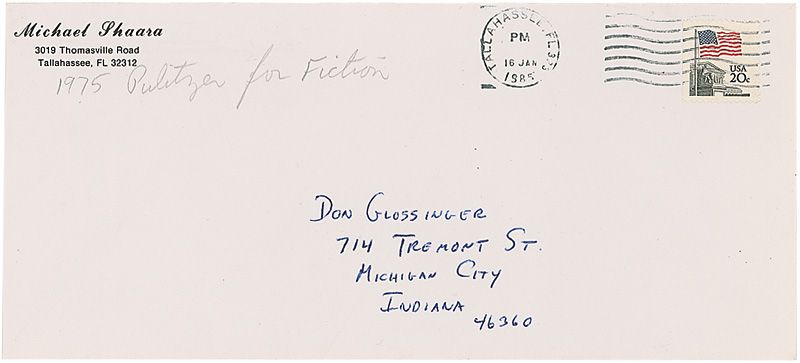 Michael Shaara
3019 Thomasville Road
Tallahassee, FL 32312
1975 Pulitzer for Fiction
TALLAHASSEE, FL 323
PM
16 JAN
1985
USA
20c
Don Glossinger
714 Tremont St.
Michigan City
Indiana
46360